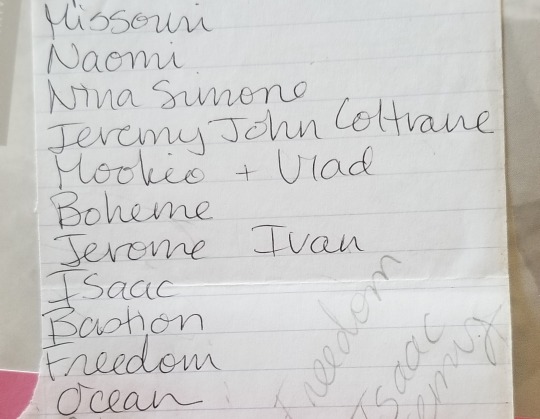 Missouri
Naomi
Nina Simone
Jeremy John Coltrane
Mookie + Vlad
Boheme
Jerome Ivan
Isaac
Bastion
Freedom
Ocean
Freedom
Isaac